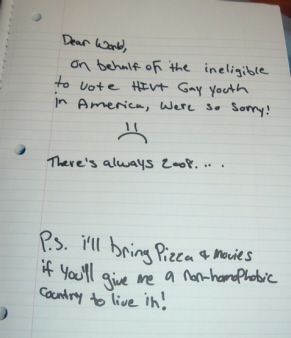 Dear World,
on behalf of the ineligible
to vote HIV+ Gay youth
in America, we're so sorry!
There's always 2008. . . .
P.s. i'll bring Pizza & Movies
if you'll give me a non-homophobic
country to live in!